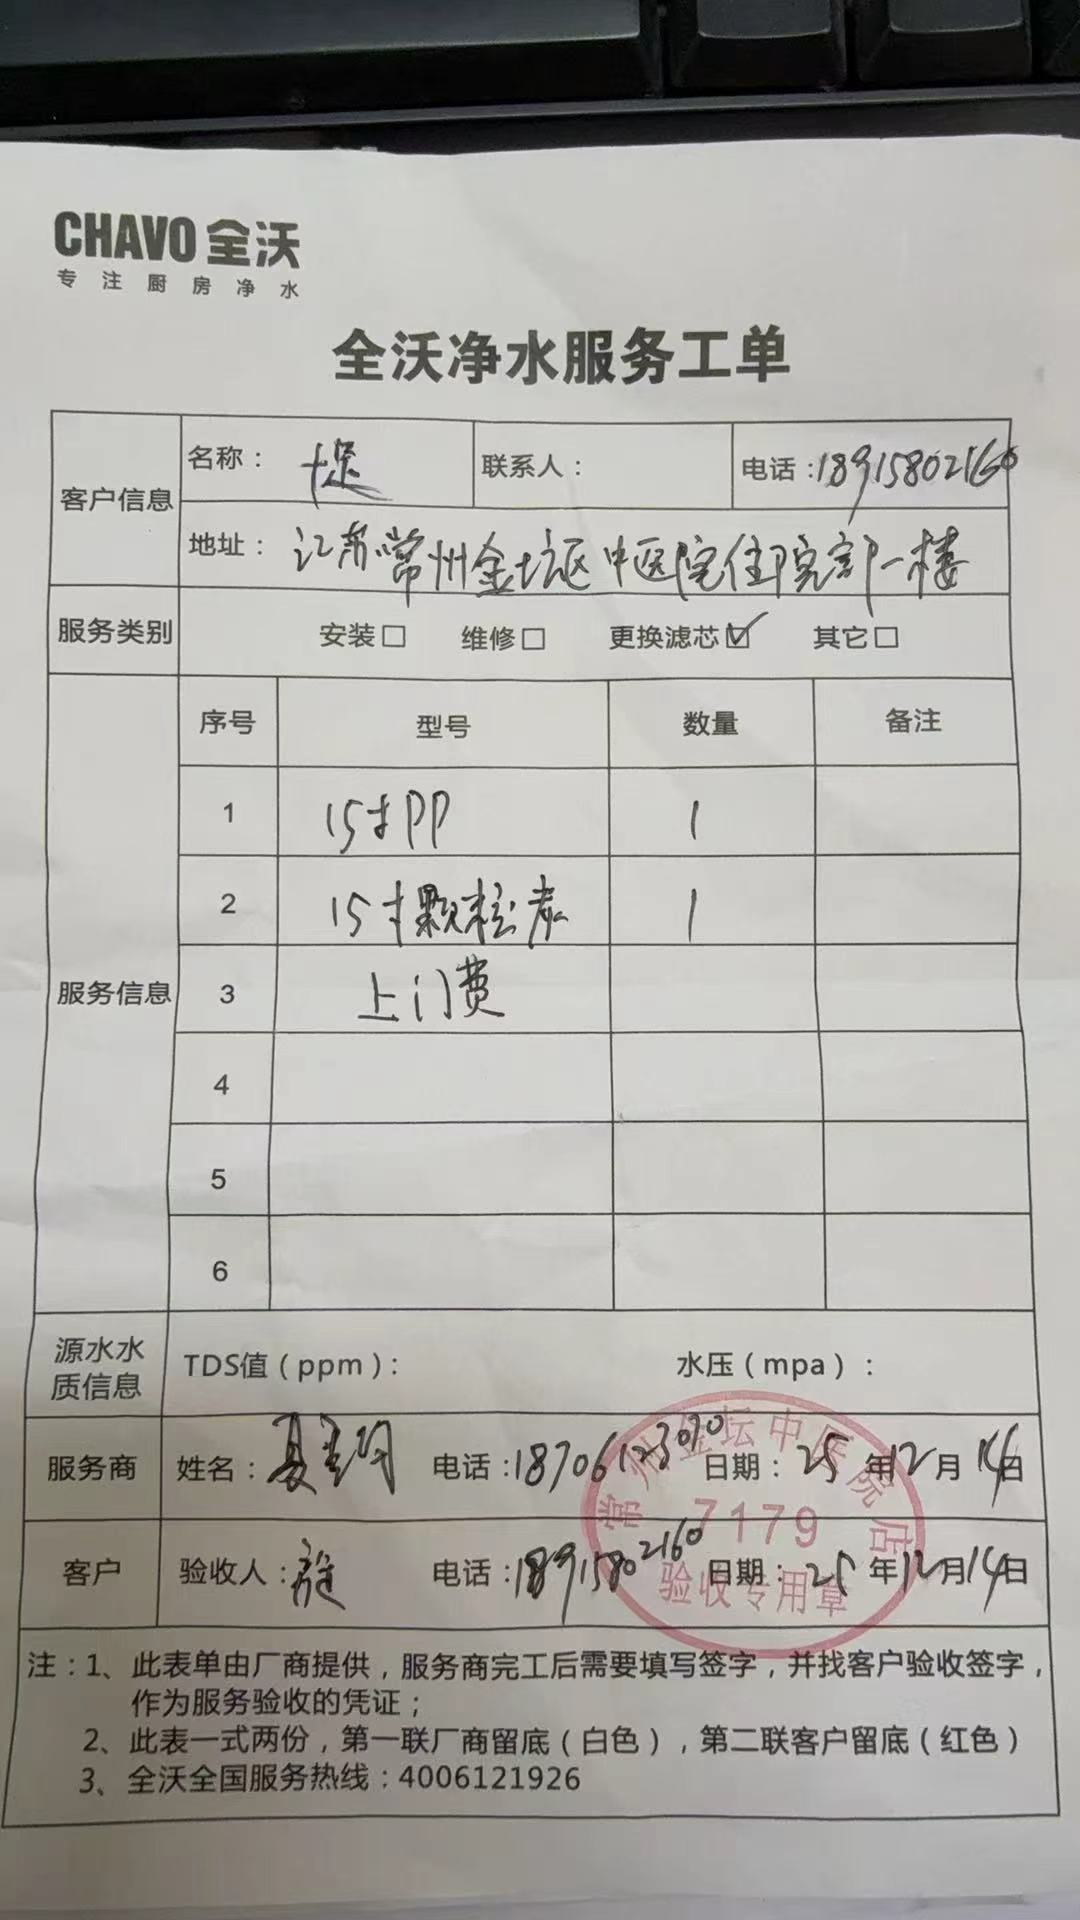 CHAVO 全沃
专注厨房净水
全沃净水服务工单
客户信息
名称：
联系人：
电话：18915802160
地址：江苏常州金坛区中医院住院部一楼
服务类别
安装□ 维修□ 更换滤芯☑ 其它□
服务信息
序号 型号 数量 备注
1 15寸PP 1
2 15寸颗粒炭 1
3 上门费
4
5
6
源水水质信息
TDS值（ppm）： 水压（mpa）：
服务商 姓名：夏 电话：18706123070 日期：25年12月14日
客户 验收人： 电话：18915802160 日期：25年12月14日
常州金坛中医院店
7179
验收专用章
注：1、此表单由厂商提供，服务商完工后需要填写签字，并找客户验收签字，
作为服务验收的凭证；
2、此表一式两份，第一联厂商留底（白色），第二联客户留底（红色）
3、全沃全国服务热线：4006121926